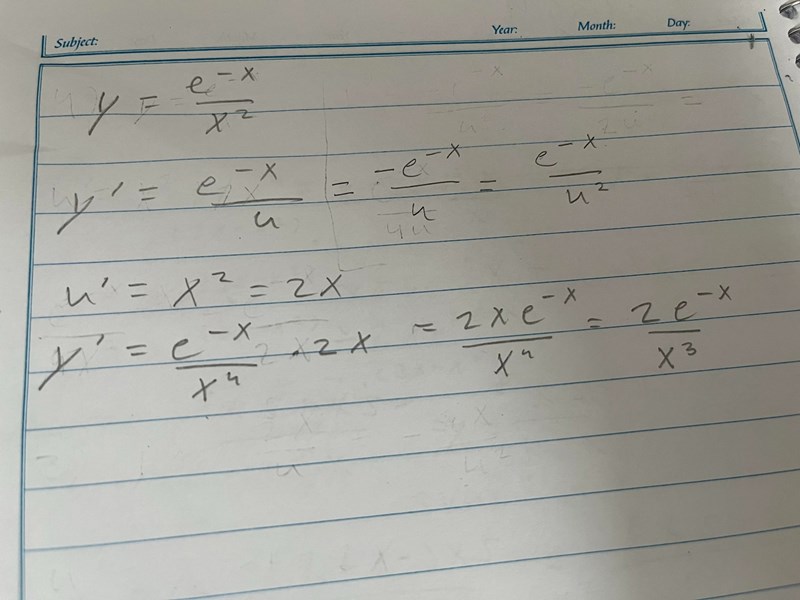 Subject: Year: Month: Day:
y = e^{-x}/x^2
y' = e^{-x}/u = -e^{-x}/u = e^{-x}/u^2
u' = x^2 = 2x
y' = e^{-x}/x^4 · 2x = 2xe^{-x}/x^4 = 2e^{-x}/x^3